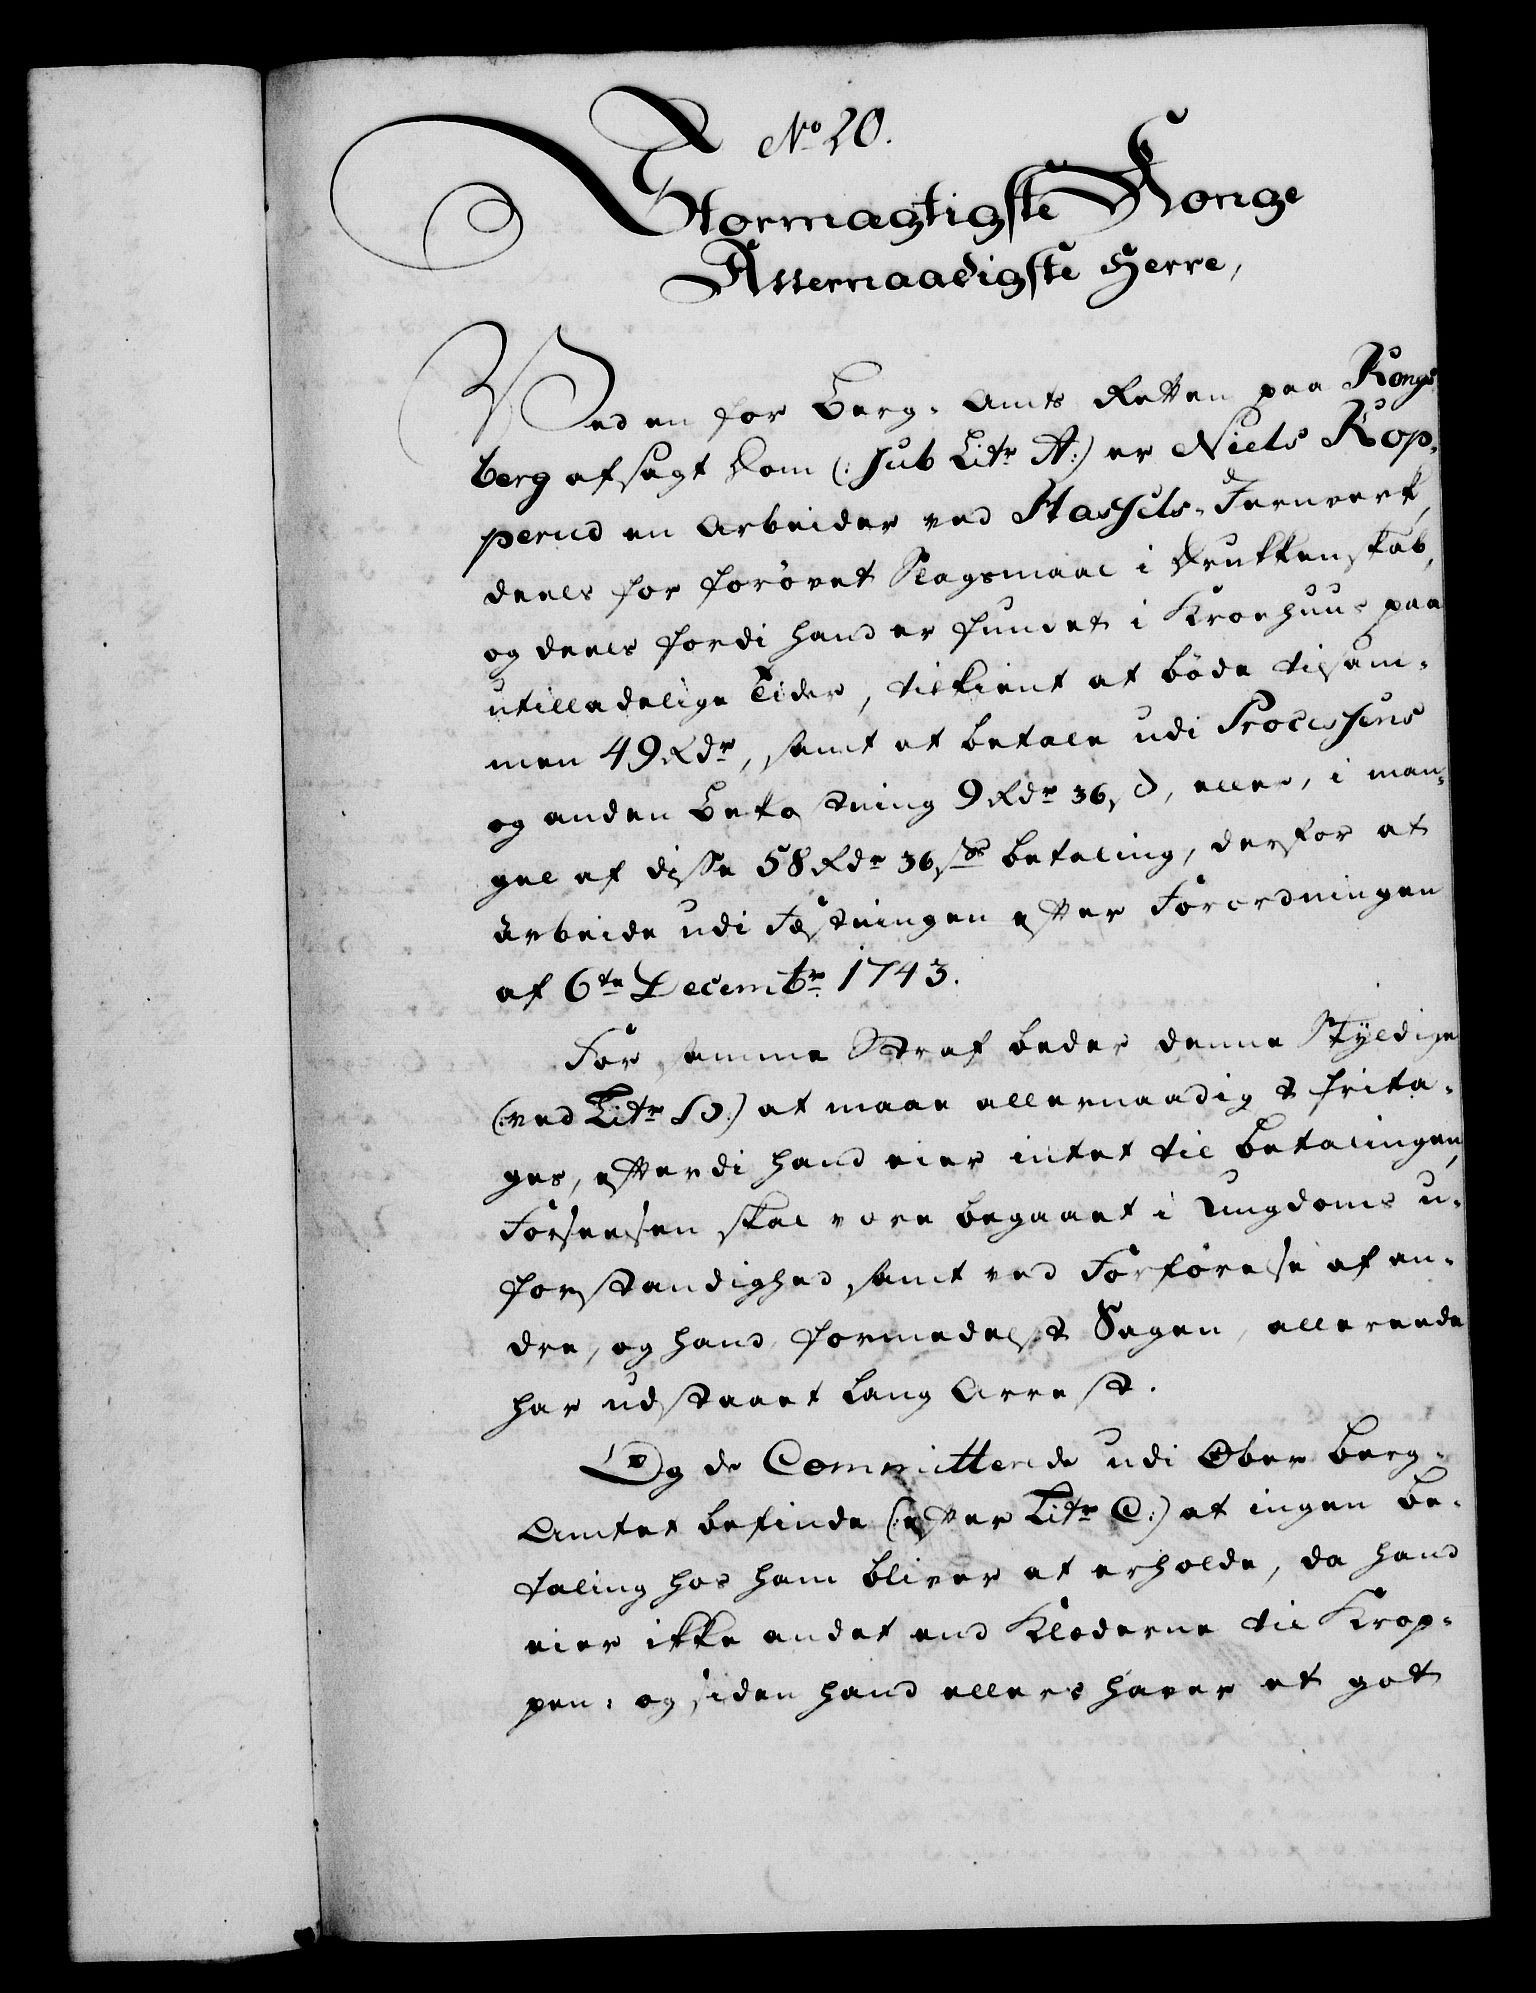 No 20.
Stormagtigste Konge
Allernaadigste Herre,
Ved en for Berg-Amts Retten paa Kongs-
berg afsagt Dom (: sub Litr A:) er Niels Kop-
perud en Arbeider ved Hassels-Jernverk,
deels for forövet Slagsmaal i Drukkenskab,
og deels fordi hand er fundet i Kroehuus paa
utilladelige Tider, tilkient at böde tilsam-
men 49 Rdr, samt at betale udi Processens
og anden Bekostning 9 Rdr 36 s, eller, i man-
gel af disse 58 Rdr 36 s betaling, derfor at
arbeide udi Fæstningen efter Forordningen
af 6te Decembr 1743.
For samme Straf beder denne Skyldige
(: ved Litr B:) at maae allernaadigst frita-
ges, efterdi hand eier intet til betalingen,
Forseelsen skal være begaaet i Ungdoms u-
forstandighed samt ved Forförelse af an-
dre, og hand formedelst Sagen, allereede
har udstaaet lang Arrest.
Og de Committerede udi Ober Berg-
Amtet befinde (: efter Litr C:) at ingen be-
taling hos ham bliver at erholde, da hand
eier ikke andet end Klæderne til Krop-
pen: og siden hand ellers haver et got